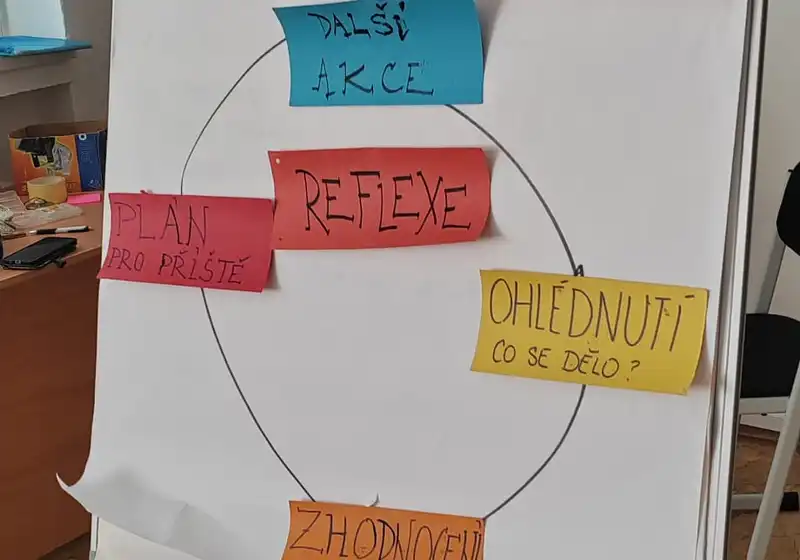 DALŠÍ
AKCE
REFLEXE
PLÁN
PRO PŘÍŠTĚ
OHLÉDNUTÍ
CO SE DĚLO?
ZHODNOCENÍ